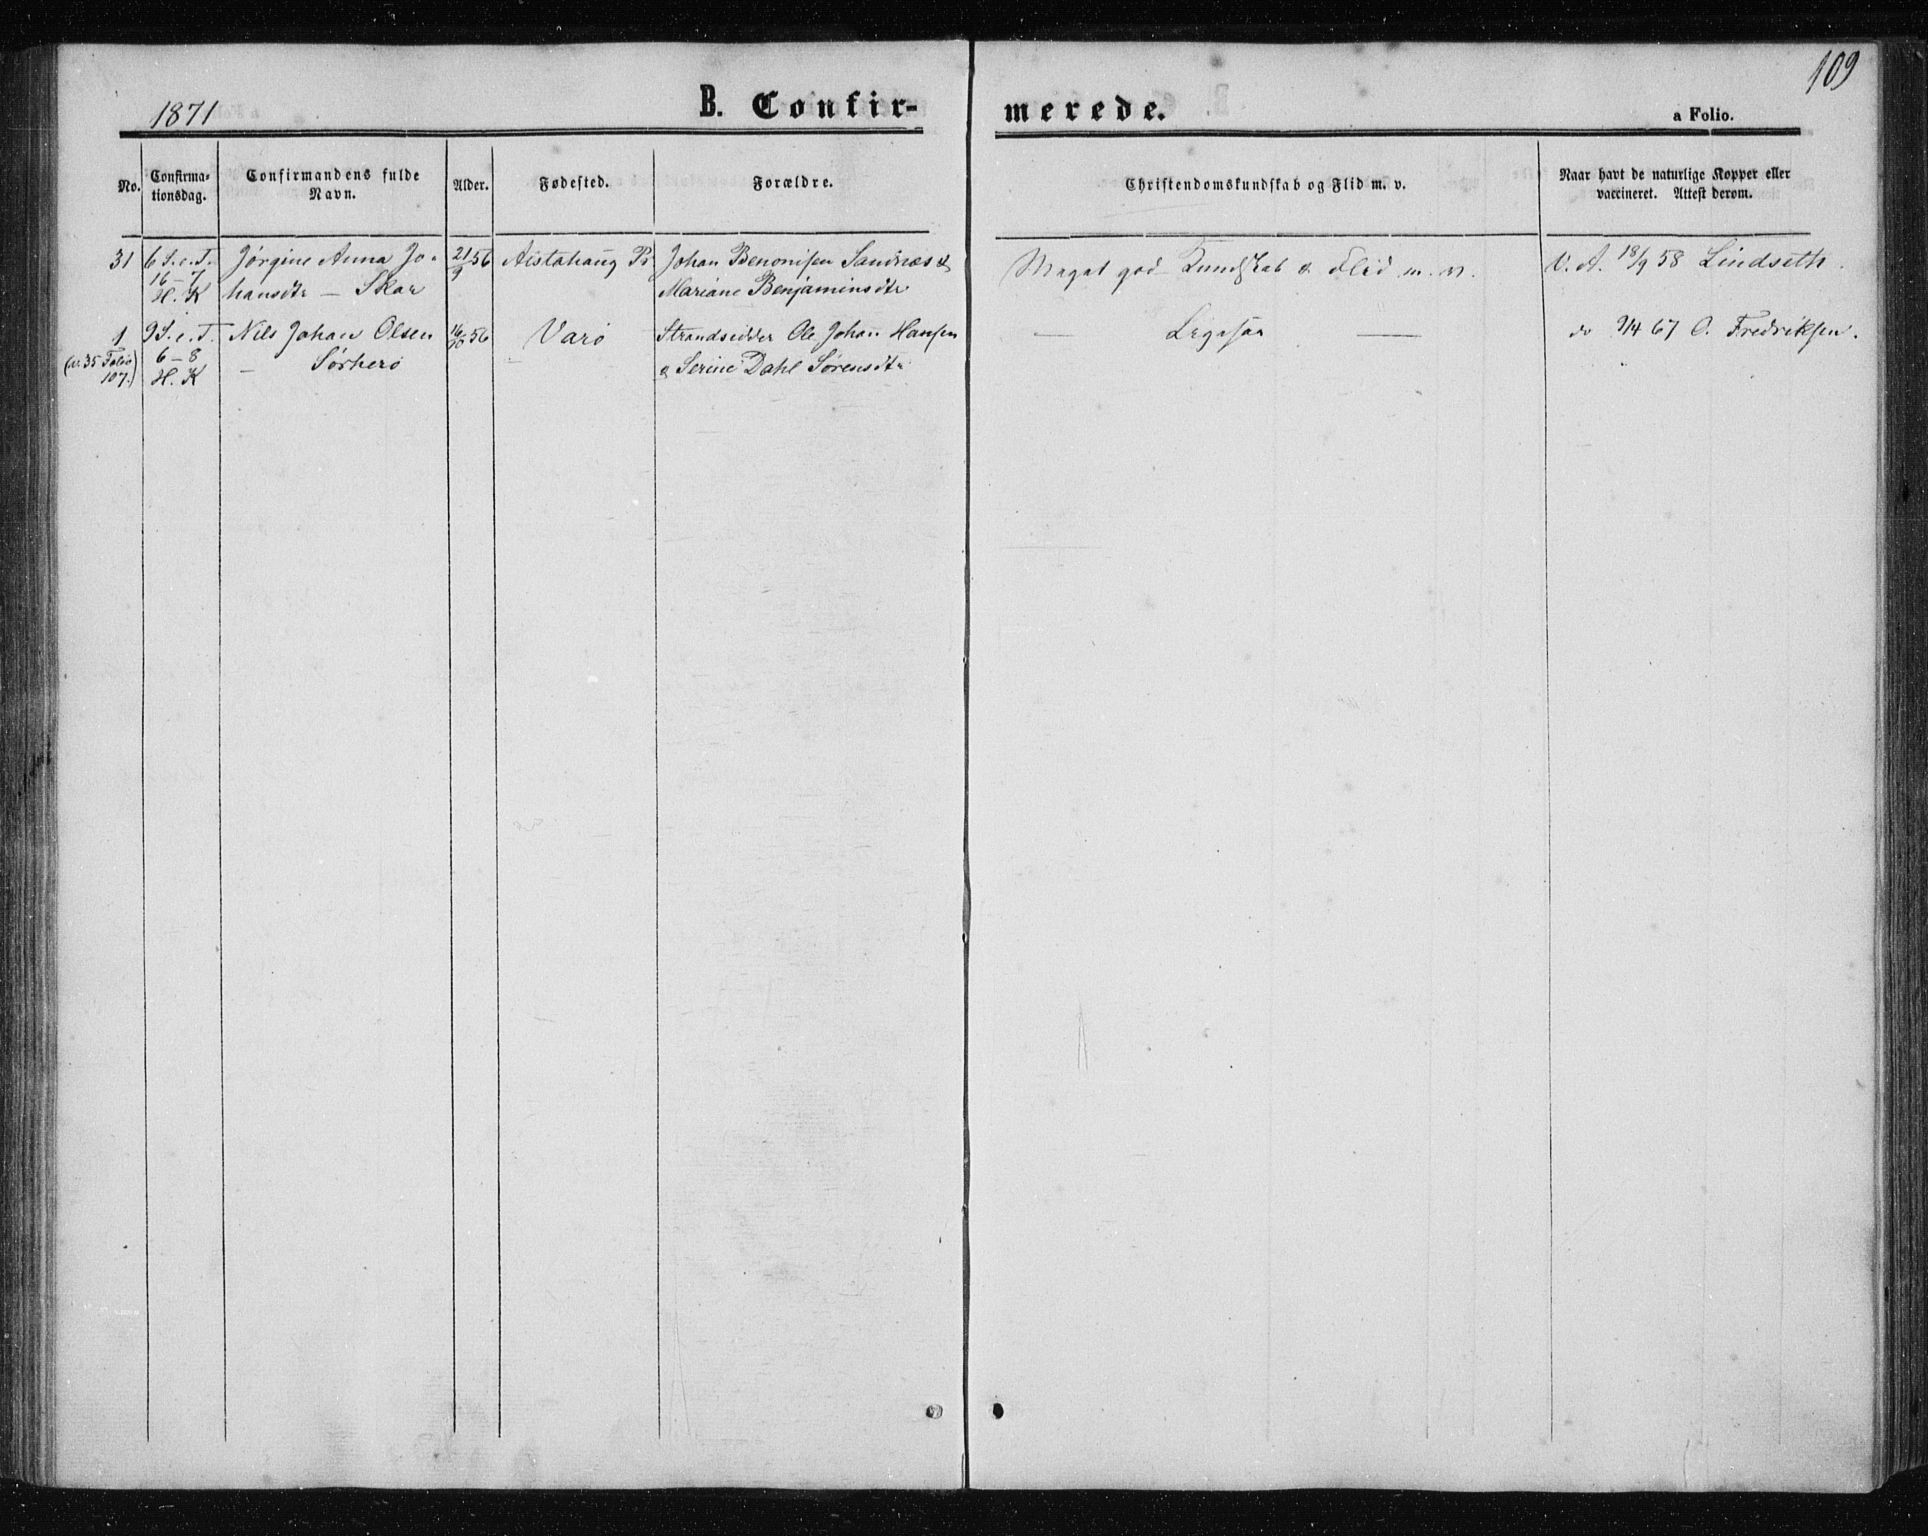 109
1871
B. Confir-
merede.
a Folio.
No.
Confirma-
tionsdag.
Confirmandens fulde
Navn.
Alder.
Fødested.
Forældre.
Christendomskundskab og Flid m. v.
Naar havt de naturlige Kopper eller
vaccineret. Attest derom.
31 6 S. e. T. Jørgine Anna Jo- 21/9 56 Alstahaug Johan Benonisen Sandnæs & Meget god Kundskab & Flid m. v. V. A. 18/9 58 Lindseth.
16 – 7 hansdtr – Skar Mariane Benjaminsdtr
H. K
1 9 S. e. T. Nils Johan Olsen 16/10 56 Varö Strandsidder Ole Johan Hansen — Ligesaa — do 9/4 67 O. Fredriksen.
(nr. 35 Folio 6 – 8 – Sørherö & Serine Dahl Sørensdtr
107.) H. K